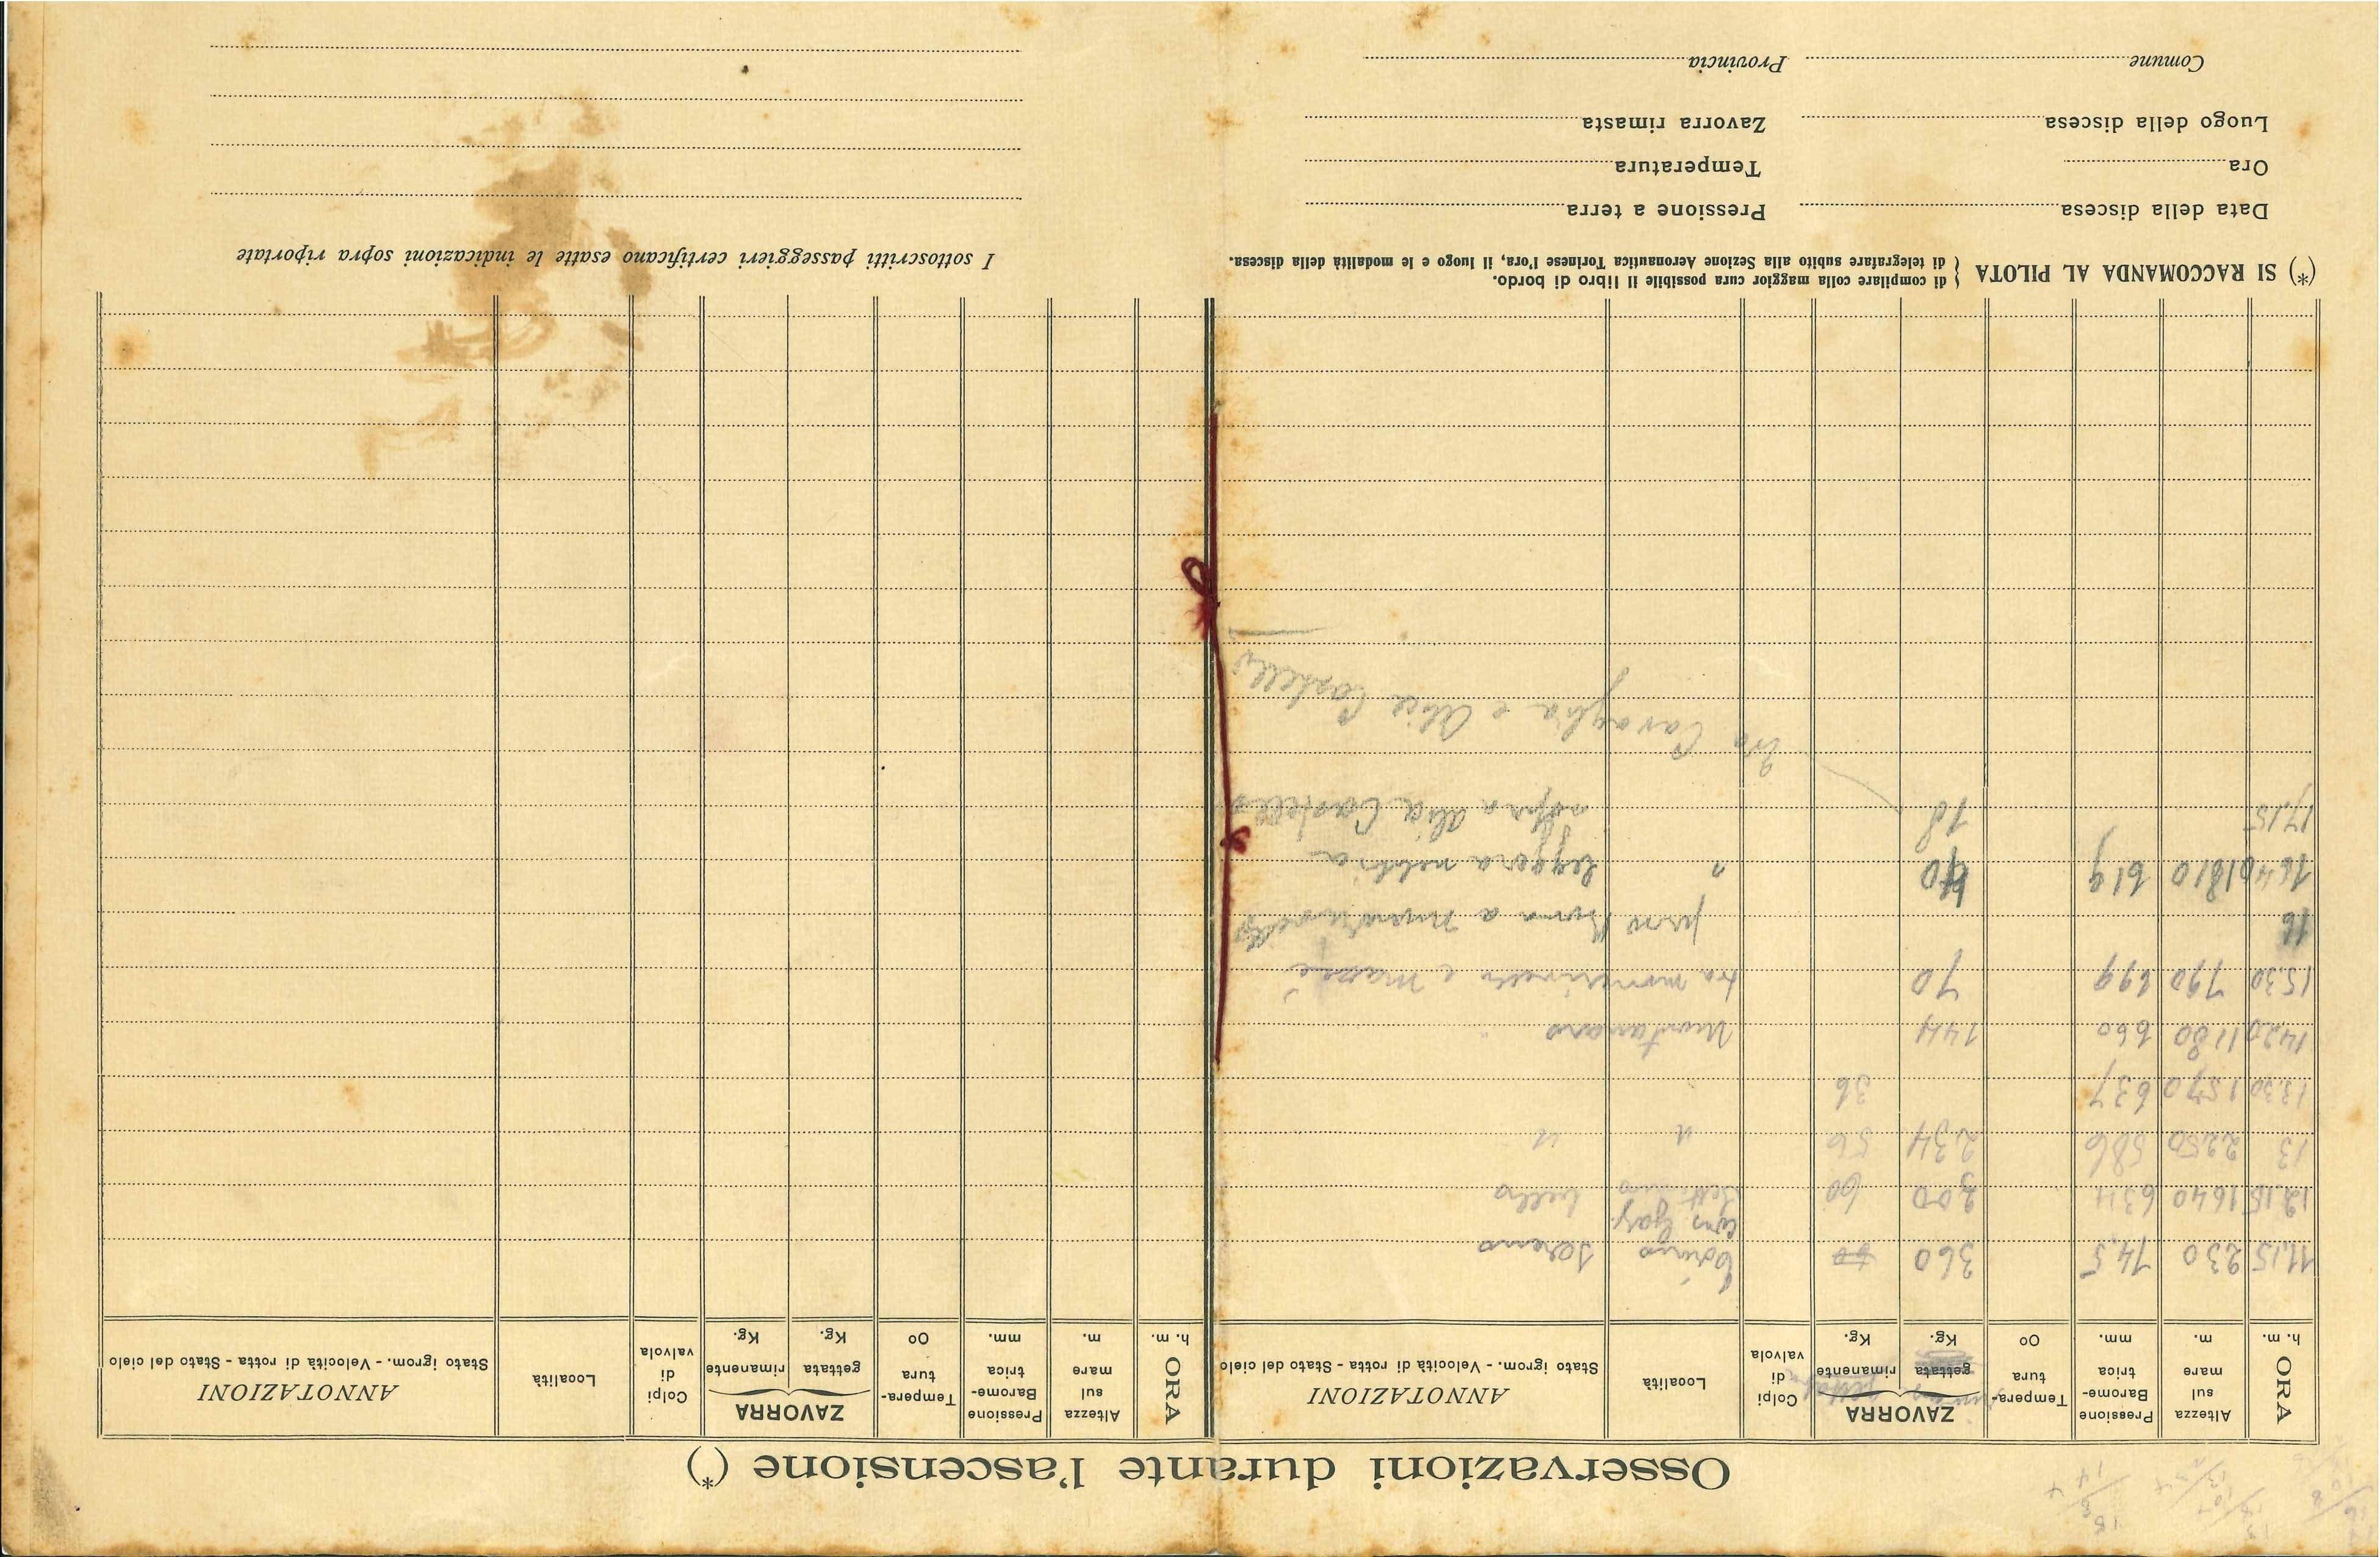 Osservazioni durante l'ascensione (*)
ORA
h. m.
Altezza
sul
mare
m.
Pressione
Barome-
trica
mm.
Tempera-
tura
Oo
ZAVORRA
gettata
Kg.
rimanente
Kg.
Colpi
di
valvola
Località
ANNOTAZIONI
Stato igrom. - Velocità di rotta - Stato del cielo
11,15 230 74,5 360 Torino sereno
12.15 1640 634 300 60 bello
13 2250 586 234 56 " "
13.30 1570 637 36 "
14.20 1180 660 144 Montanaro "
15.30 790 699 70 tra
16
1640 1810 619 40 " leggera nebbia
17,15 18 sopra Alice Castello
tra Cavaglià e Alice Castello
(*) SI RACCOMANDA AL PILOTA
di compilare colla maggior cura possibile il libro di bordo.
di telegrafare subito alla Sezione Aeronautica Torinese l'ora, il luogo e le modalità della discesa.
Data della discesa Pressione a terra
Ora Temperatura
Luogo della discesa Zavorra rimasta
Comune Provincia
ORA
h. m.
Altezza
sul
mare
m.
Pressione
Barome-
trica
mm.
Tempera-
tura
Oo
ZAVORRA
gettata
Kg.
rimanente
Kg.
Colpi
di
valvola
Località
ANNOTAZIONI
Stato igrom. - Velocità di rotta - Stato del cielo
I sottoscritti passeggieri certificano esatte le indicazioni sopra riportate